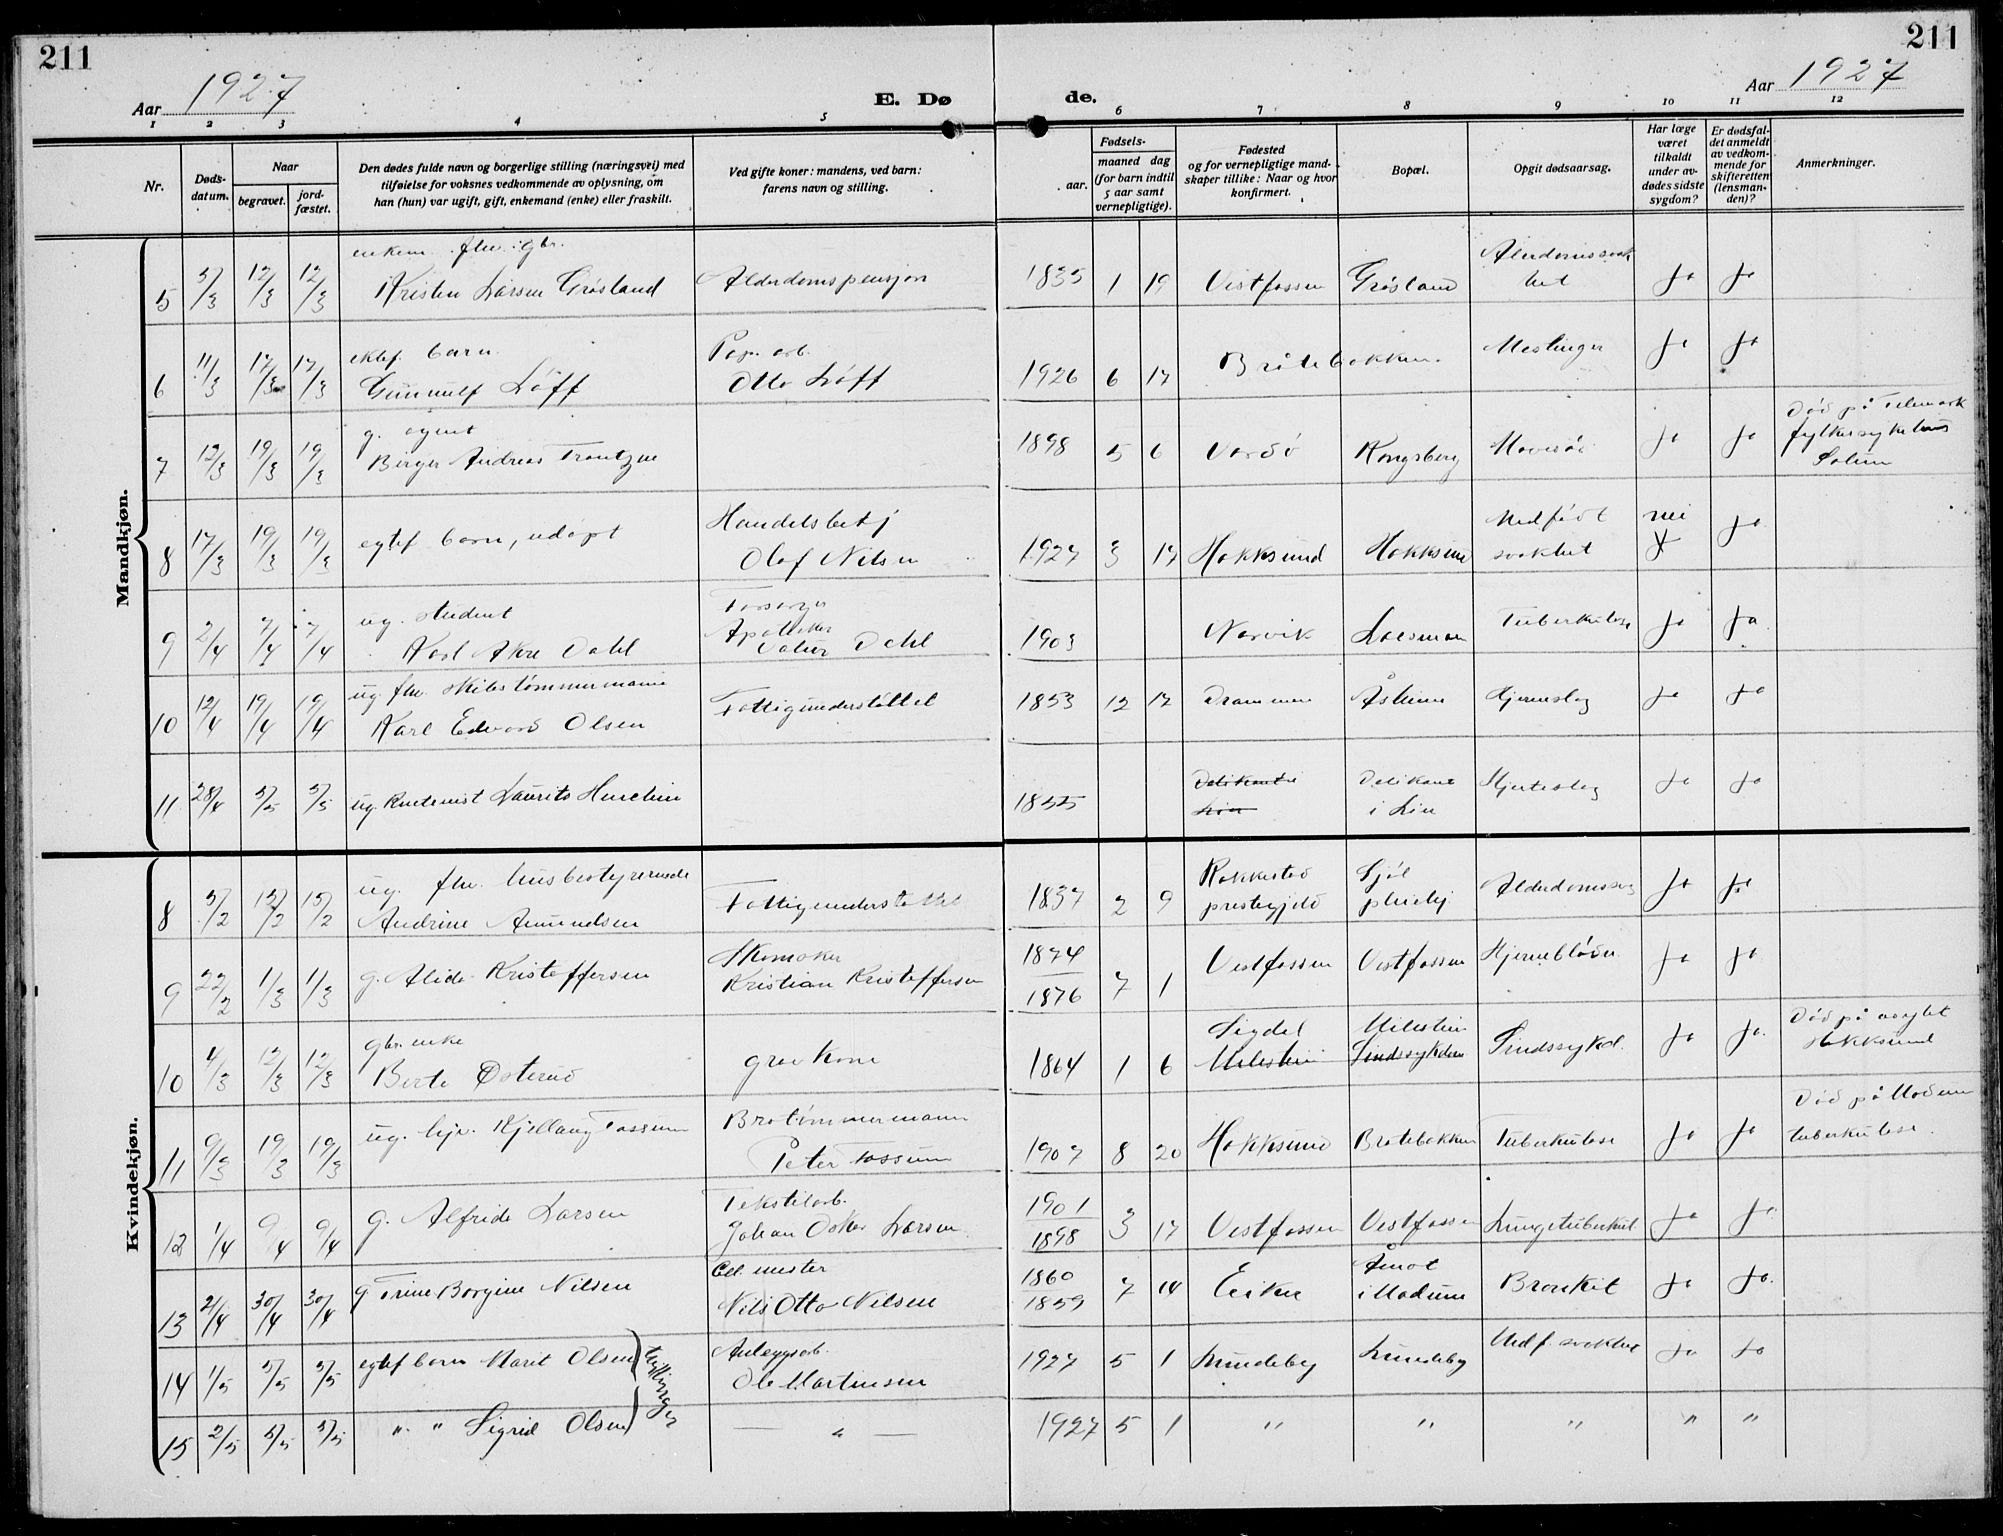 211
211
Aar 1927
E. Dø
de.
Aar 1927
1 2 3 4 5 6 7 8 9 10 11 12
Nr.
Døds-
datum.
Naar
begravet.
jord-
fæstet.
Den dødes fulde navn og borgerlige stilling (næringsvei) med
tilføielse for voksnes vedkommende av oplysning, om
han (hun) var ugift, gift, enkemand (enke) eller fraskilt.
Ved gifte koner: mandens, ved barn:
farens navn og stilling.
Fødsels-
aar.
maaned dag
(for barn indtil
5 aar samt
vernepligtige).
Fødested
og for vernepligtige mand-
skaper tillike: Naar og hvor
konfirmert.
Bopæl.
Opgit dødsaarsag.
Har læge
været
tilkaldt
under av-
dødes sidste
sygdom?
Er dødsfal-
det anmeldt
av vedkom-
mende for
skifteretten
(lensman-
den)?
Anmerkninger.
Mandkjøn.
enkem. fhv. gbr.
5 5/3 12/3 12/3 Kristen Larsen Grøsland Alderdomspensjon 1835 1 19 Vestfossen Grøsland Alderdomssvak
het ja ja
ektef. barn.
6 11/3 17/3 17/3 Gunnulf Løff
Pap. arb.
Otto Løff 1926 6 17 Bråtebakken. Meslinger ja ja
g. agent
7 12/3 19/3 19/3 Birger Andreas Trantzen 1898 5 6 Vardö Kongsberg ja ja
Död på Telemark
fylkessykehus
Solum
8 17/3 19/3 19/3 egtef barn, udøpt
Handelsbetj
Olaf Nilsen 1927 3 17 Hokksund Hokksund
Medfödt
svakhet
nei ja
ug. student
9 2/4 7/4 7/4 Karl Dahl
Forsørger
Apoteker
Dahl 1903 Narvik Loesmoen Tuberkulose ja ja.
ug. fhv. skibstømmermann
10 12/4 19/4 19/4 Karl Edvard Olsen Fattigunderstøttet 1853 12 17 Drammen Åsheim Hjerneslag ja ja
11 28/4 5/5 5/5 ug. Rentenist Laurits 1855
i Lier Hjerteslag ja ja
Kvindekjøn.
ug. fhv. husbestyrerinde
8 5/2 15/2 15/2 Andrine Amundsen Fattigunderstøttet 1837 2 9
Rakkestad
prestegjeld
Alderdomssvag ja ja
9 22/2 1/3 1/3 g. Alida Kristoffersen
Skomaker
Kristian Kristoffersen
1874
1876 7 1 Vestfossen Vestfossen Hjerneblödn ja ja
gbr. enke
10 4/3 12/3 12/3 Berte Østerud gaardkone 1864 1 6
Sigdal
Milestein
Milestein
Sindssykdom Sindssykd. ja ja.
Död på asylet
Hokksund
11 9/3 19/3 19/3 ug. hjv. Kjellaug Fossum
Brotömmermann
Peter Fossum 1907 8 20 Hokksund Bråtebakken Tuberkulose ja ja
Död på Modum
tuberkulose.
12 1/4 9/4 9/4 g. Alfride Larsen
Tekstilarb.
Johan Oskar Larsen.
1901
1898 3 17 Vestfossen Vestfossen Lungetuberkul. ja ja
13 21/4 30/4 30/4 g Trine Borgine Nilsen
Cel. mester
Nils Otto Nilsen
1860
1859 7 14 Eiker
Åmot
i Modum Bronkit ja ja.
14 1/5 5/5 5/5 egtef barn Marit Olsen
tvillinger
Anleggsarb.
Ole Martinsen 1927 5 1 Lundeby Lundeby Medf. svakhet ja ja
15 2/5 5/5 5/5 " " Sigrid Olsen — " — 1927 5 1 " " " " "